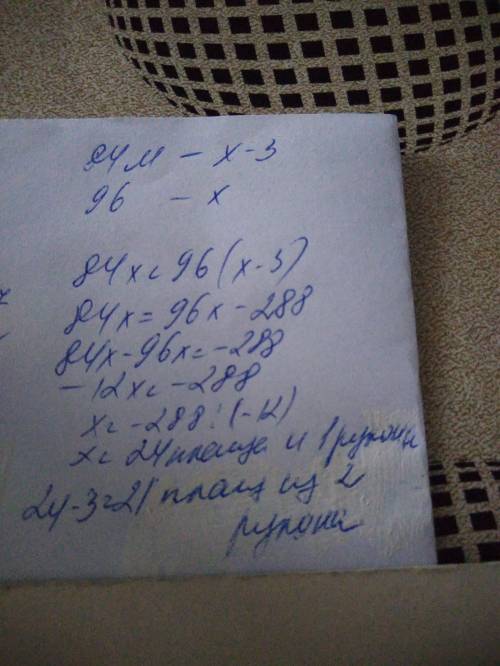 84м - х-3
96 - х
84х = 96(х-3)
84х = 96х - 288
84х - 96х = -288
-12х = -288
х = -288 : (-12)
х = 24 плаща и 1 рулона
24-3=21 плащ из 2
рулона